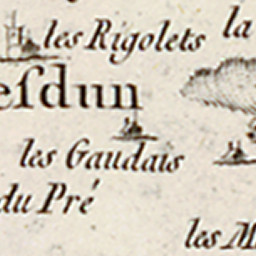 les Rigolets la
eſdun
les Gaudais
du Pré
les M